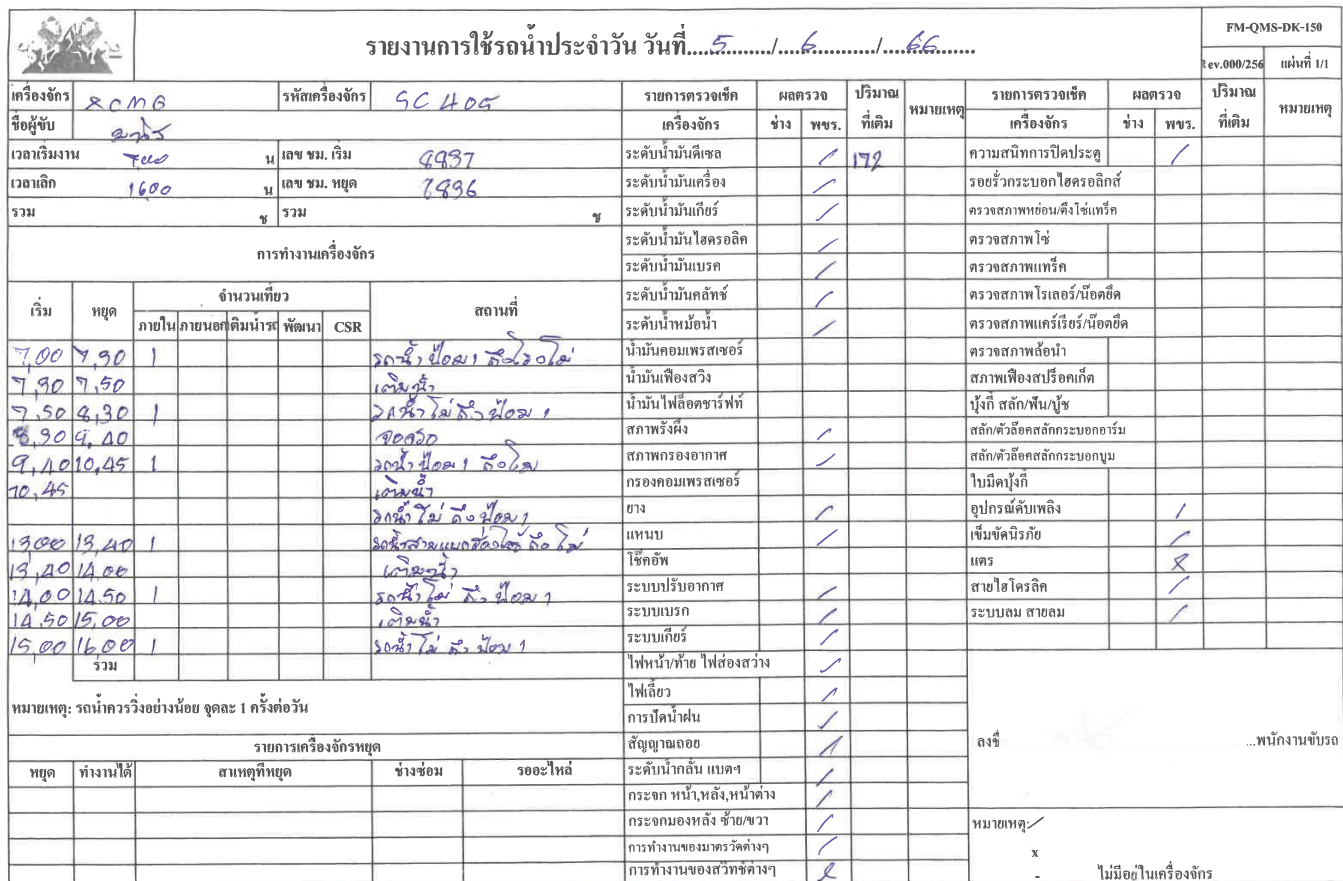 รายงานการใช้รถน้ำประจำวัน วันที่....5........./....6.........../....66.......
FM-QMS-DK-150
Rev.000/256 แผ่นที่ 1/1
เครื่องจักร XCMG รหัสเครื่องจักร SC 405
ชื่อผู้ขับ
เวลาเริ่มงาน 700 น เลข ชม. เริ่ม
เวลาเลิก 1600 น เลข ชม. หยุด
รวม ช รวม ช
การทำงานเครื่องจักร
เริ่ม หยุด จำนวนเที่ยว สถานที่
ภายใน ภายนอก เติมน้ำรถ พัฒนา CSR
7,00 7,30 1 รดน้ำ ป้อม 1 ถึงโรงโม่
7,30 7,50 เติมน้ำ
7,50 8,30 1 รดน้ำ โม่ ถึง ป้อม 1
8,30 9,40 จอดรถ
9,40 10,45 1 รดน้ำ ป้อม 1 ถึงโม่
10,45 เติมน้ำ
รดน้ำ โม่ ถึง ป้อม 1
13,00 13,40 1 รดน้ำสาย ถึง โม่
13,40 14,00 เติมน้ำ
14,00 14,50 1 รดน้ำ โม่ ถึง ป้อม 1
14,50 15,00 เติมน้ำ
15,00 16,00 1 รดน้ำ โม่ ถึง ป้อม 1
รวม
หมายเหตุ: รถน้ำควรวิ่งอย่างน้อย จุดละ 1 ครั้งต่อวัน
รายการเครื่องจักรหยุด
หยุด ทำงานได้ สาเหตุที่หยุด ช่างซ่อม รออะไหล่
รายการตรวจเช็ค ผลตรวจ ปริมาณ หมายเหตุ
เครื่องจักร ช่าง พขร. ที่เติม
ระดับน้ำมันดีเซล / 172
ระดับน้ำมันเครื่อง /
ระดับน้ำมันเกียร์ /
ระดับน้ำมันไฮดรอลิค /
ระดับน้ำมันเบรค /
ระดับน้ำมันคลัทช์ /
ระดับน้ำหม้อน้ำ /
น้ำมันคอมเพรสเซอร์
น้ำมันเฟืองสวิง
น้ำมันไฟล็อตชาร์ฟท์
สภาพรังผึ้ง /
สภาพกรองอากาศ /
กรองคอมเพรสเซอร์
ยาง /
แหนบ /
โช๊คอัพ
ระบบปรับอากาศ /
ระบบเบรก /
ระบบเกียร์ /
ไฟหน้า/ท้าย ไฟส่องสว่าง /
ไฟเลี้ยว /
การปัดน้ำฝน /
สัญญาณถอย /
ระดับน้ำกลั่น แบตฯ /
กระจก หน้า,หลัง,หน้าต่าง /
กระจกมองหลัง ซ้าย/ขวา /
การทำงานของมาตรวัดต่างๆ /
การทำงานของสวิทช์ต่างๆ x
รายการตรวจเช็ค ผลตรวจ ปริมาณ หมายเหตุ
เครื่องจักร ช่าง พขร. ที่เติม
ความสนิทการปิดประตู /
รอยรั่วกระบอกไฮดรอลิกส์
ตรวจสภาพหย่อน/ตึงโซ่แทร็ค
ตรวจสภาพโซ่
ตรวจสภาพแทร็ค
ตรวจสภาพโรเลอร์/น๊อตยึด
ตรวจสภาพแคร์เรียร์/น๊อตยึด
ตรวจสภาพล้อนำ
สภาพเฟืองสปร็อคเก็ต
บุ้งกี๋ สลัก/ฟัน/บู้ช
สลัก/ตัวล๊อคสลักกระบอกอาร์ม
สลัก/ตัวล๊อคสลักกระบอกบูม
ใบมีดบุ้งกี๋
อุปกรณ์ดับเพลิง /
เข็มขัดนิรภัย /
แตร x
สายไฮโดรลิค /
ระบบลม สายลม /
ลงชื่ ...พนักงานขับรถ
หมายเหตุ: /
x
- ไม่มีอยู่ในเครื่องจักร